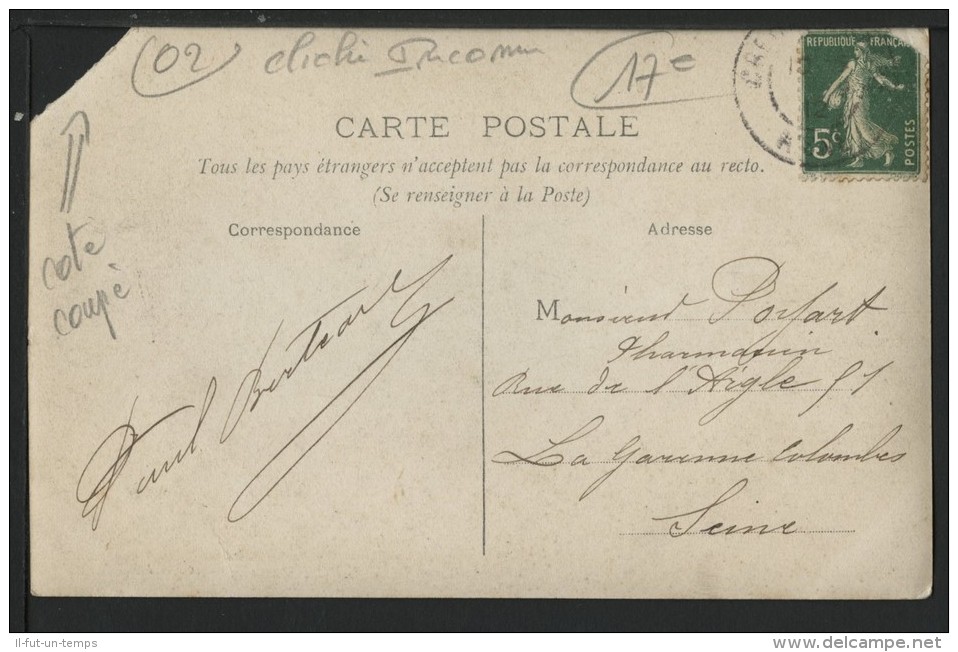 02
cliché Inconnu
17€
RÉPUBLIQUE FRANÇAISE
5c
POSTES
CARTE POSTALE
Tous les pays étrangers n'acceptent pas la correspondance au recto.
(Se renseigner à la Poste)
coté
coupé
Correspondance
Adresse
Paul Bertrand
Monsieur
Pharmacien
Rue de l'Aigle 51
La Garenne Colombes
Seine
Il-fut-un-temps
www.delcampe.net